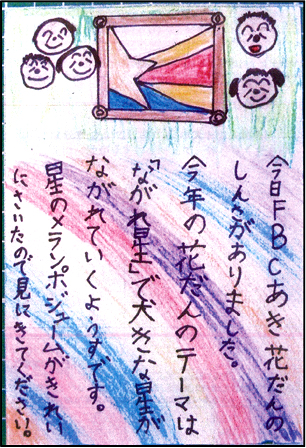 今日FBCあき花だんの
しんさがありました。
今年の花だんのテーマは
「ながれ星」で大きな星が
ながれていくようすです。
星のメランポジュームがきれい
にさいたので見にきてください。